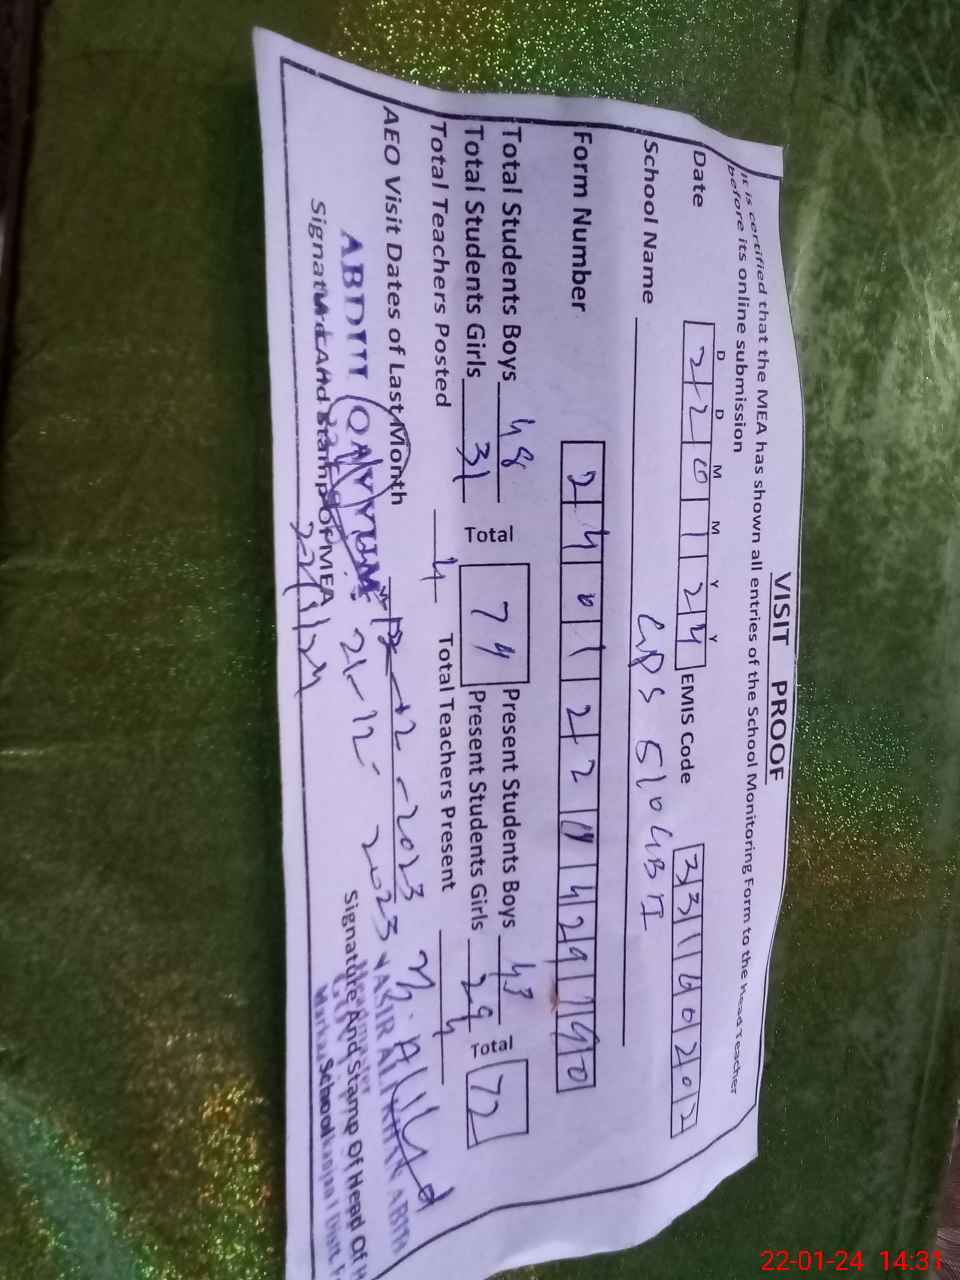 VISIT PROOF
It is certified that the MEA has shown all entries of the School Monitoring Form to the Head Teacher
before its online submission
D D M M Y Y
Date 2 2 0 1 2 4 EMIS Code 3 3 1 1 0 2 0 2
School Name GPS 510 GB I
Form Number 2 4 0 1 2 2 0 4 2 9 9 0
Total Students Boys 48 Total 74 Present Students Boys 43 Total 72
Total Students Girls 31 Present Students Girls 29
Total Teachers Posted 4 Total Teachers Present 4
AEO Visit Dates of Last Month 12-2023
21-12-2023
ABDUL QAYYUM
Signature And Stamp Of MEA
22/1/24
YASIR ALI KHAN
Headmaster
Signature And Stamp Of Head Of
School
22-01-24 14:31